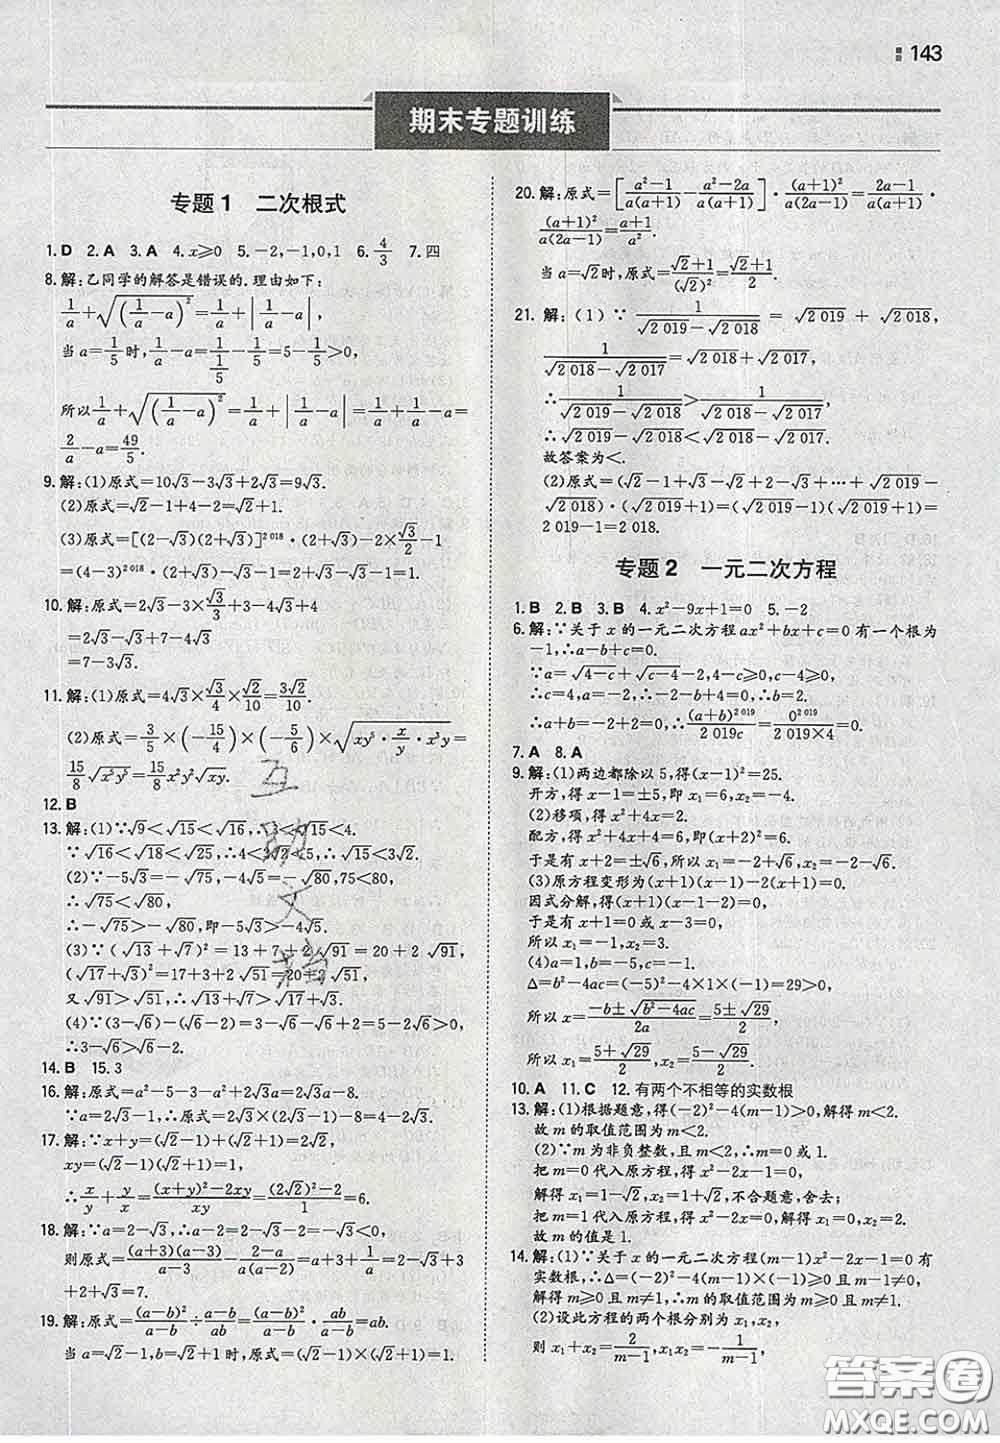 143
期末专题训练
专题1 二次根式
1.D 2.A 3.A 4.x⩾0 5.-2,-1,0,1 6.4/3 7.四
8.解:乙同学的解答是错误的.理由如下:
1/a+√((1/a-a)²)=1/a+|1/a-a|,
当a=1/5时,1/a-a=1/(1/5)-1/5=5-1/5>0,
所以1/a+√((1/a-a)²)=1/a+|1/a-a|=1/a+1/a-a=
2/a-a=49/5.
9.解:(1)原式=10√3-3√3+2√3=9√3.
(2)原式=√2-1+4-2=√2+1.
(3)原式=[(2-√3)(2+√3)]^2 018-√3+2×√3/2-1
=(4-3)^2 018-√3+√3-1=1-√3+√3-1=0.
10.解:原式=2√3-3×√3/3+3-4√3+4
=2√3-√3+7-4√3
=7-3√3.
11.解:(1)原式=4√3×√3/4×√2/10=3√2/10.
(2)原式=3/5×(-15/4)×(-5/6)×√(xy⁵·x/y·x³y)=
15/8√(x⁵y⁵)=15/8x²y²√(xy).
12.B
13.解:(1)∵√9<√15<√16,∴3<√15<4.
∵√16<√18<√25,∴4<3√2<5,∴√15<3√2.
(2)∵-5√3=-√75,-4√5=-√80,75<80,
∴√75<√80,
∴-√75>-√80,即-5√3>-4√5.
(3)∵(√13+√7)²=13+7+2√91=20+2√91,
(√17+√3)²=17+3+2√51=20+2√51,
又√91>√51,∴√13+√7>√17+√3.
(4)∵(3-√6)-(√6-2)=5-2√6=√25-√24>0,
∴3-√6>√6-2.
14.B 15.3
16.解:原式=a²-5-3-a²+2√3a=2√3a-8.
∵a=2√3-1,∴原式=2√3×(2√3-1)-8=4-2√3.
17.解:∵x+y=(√2-1)+(√2+1)=2√2,
xy=(√2-1)(√2+1)=1,
∴x/y+y/x=((x+y)²-2xy)/xy=((2√2)²-2×1)/1=6.
18.解:∵a=2-√3,∴a-2=2-√3-2=-√3<0,
则原式=(a+3)(a-3)/(a-3)-(2-a)/(a(a-2))=a+3+1/a=2-√3+3
+2+√3=7.
19.解:原式=(a-b)²/(a-b)÷(a-b)/ab=(a-b)²/(a-b)·ab/(a-b)=ab.
当a=√2+1,b=√2-1时,原式=(√2+1)(√2-1)=1.
20.解:原式=[(a²-1)/(a(a+1))-(a²-2a)/(a(a+1))]·(a+1)²/(a(2a-1))=(2a-1)/(a(a+1))·
(a+1)²/(a(2a-1))=(a+1)/a².
当a=√2时,原式=(√2+1)/(√2)²=(√2+1)/2.
21.解:(1)∵1/(√2 019-√2 018)=√2 019+√2 018,
1/(√2 018-√2 017)=√2 018+√2 017,
∴1/(√2 019-√2 018)>1/(√2 018-√2 017),
∴√2 019-√2 018<√2 018-√2 017.
故答案为<.
(2)原式=(√2-1+√3-√2+2-√3+…+√2 019-
√2 018)·(√2 019+1)=(√2 019-1)(√2 019+1)=
2 019-1=2 018.
专题2 一元二次方程
1.B 2.B 3.B 4.x²-9x+1=0 5.-2
6.解:∵关于x的一元二次方程ax²+bx+c=0有一个根为
-1,∴a-b+c=0.
∵a=√(4-c)+√(c-4)-2,4-c⩾0,c-4⩾0,
∴c=4,a=-2,∴-2-b+4=0,∴b=2.
∴a+b=-2+2=0,∴(a+b)^2 019/2 019c=0^2 019/(2 019×4)=0.
7.A 8.A
9.解:(1)两边都除以5,得(x-1)²=25.
开方,得x-1=±5,即x₁=6,x₂=-4.
(2)移项,得x²+4x=2.
配方,得x²+4x+4=6,即(x+2)²=6.
于是有x+2=±√6,所以x₁=-2+√6,x₂=-2-√6.
(3)原方程变形为(x+1)(x-1)-2(x+1)=0.
因式分解,得(x+1)(x-1-2)=0.
于是有x+1=0或x-3=0.
所以x₁=-1,x₂=3.
(4)a=1,b=-5,c=-1.
Δ=b²-4ac=(-5)²-4×1×(-1)=29>0,
所以x=(-b±√(b²-4ac))/2a=(5±√29)/2,
所以x₁=(5+√29)/2,x₂=(5-√29)/2.
10.A 11.C 12.有两个不相等的实数根
13.解:(1)根据题意,得(-2)²-4(m-1)>0,解得m<2.
故m的取值范围为m<2.
(2)∵m为非负整数,且m<2,∴m=0或1.
把m=0代入原方程,得x²-2x-1=0,
解得x₁=1-√2,x₂=1+√2,不合题意,舍去;
把m=1代入原方程,得x²-2x=0,解得x₁=0,x₂=2.
故m的值是1.
14.解:(1)∵关于x的一元二次方程(m-1)x²-2x-1=0有
实数根,∴Δ=(-2)²-4(m-1)×(-1)⩾0且m-1≠0,
解得m⩾0且m≠1,∴m的取值范围是m⩾0且m≠1.
(2)设此方程的两个根分别为x₁,x₂,
则x₁+x₂=2/(m-1),x₁x₂=-1/(m-1),
答案圈
MXQE.COM